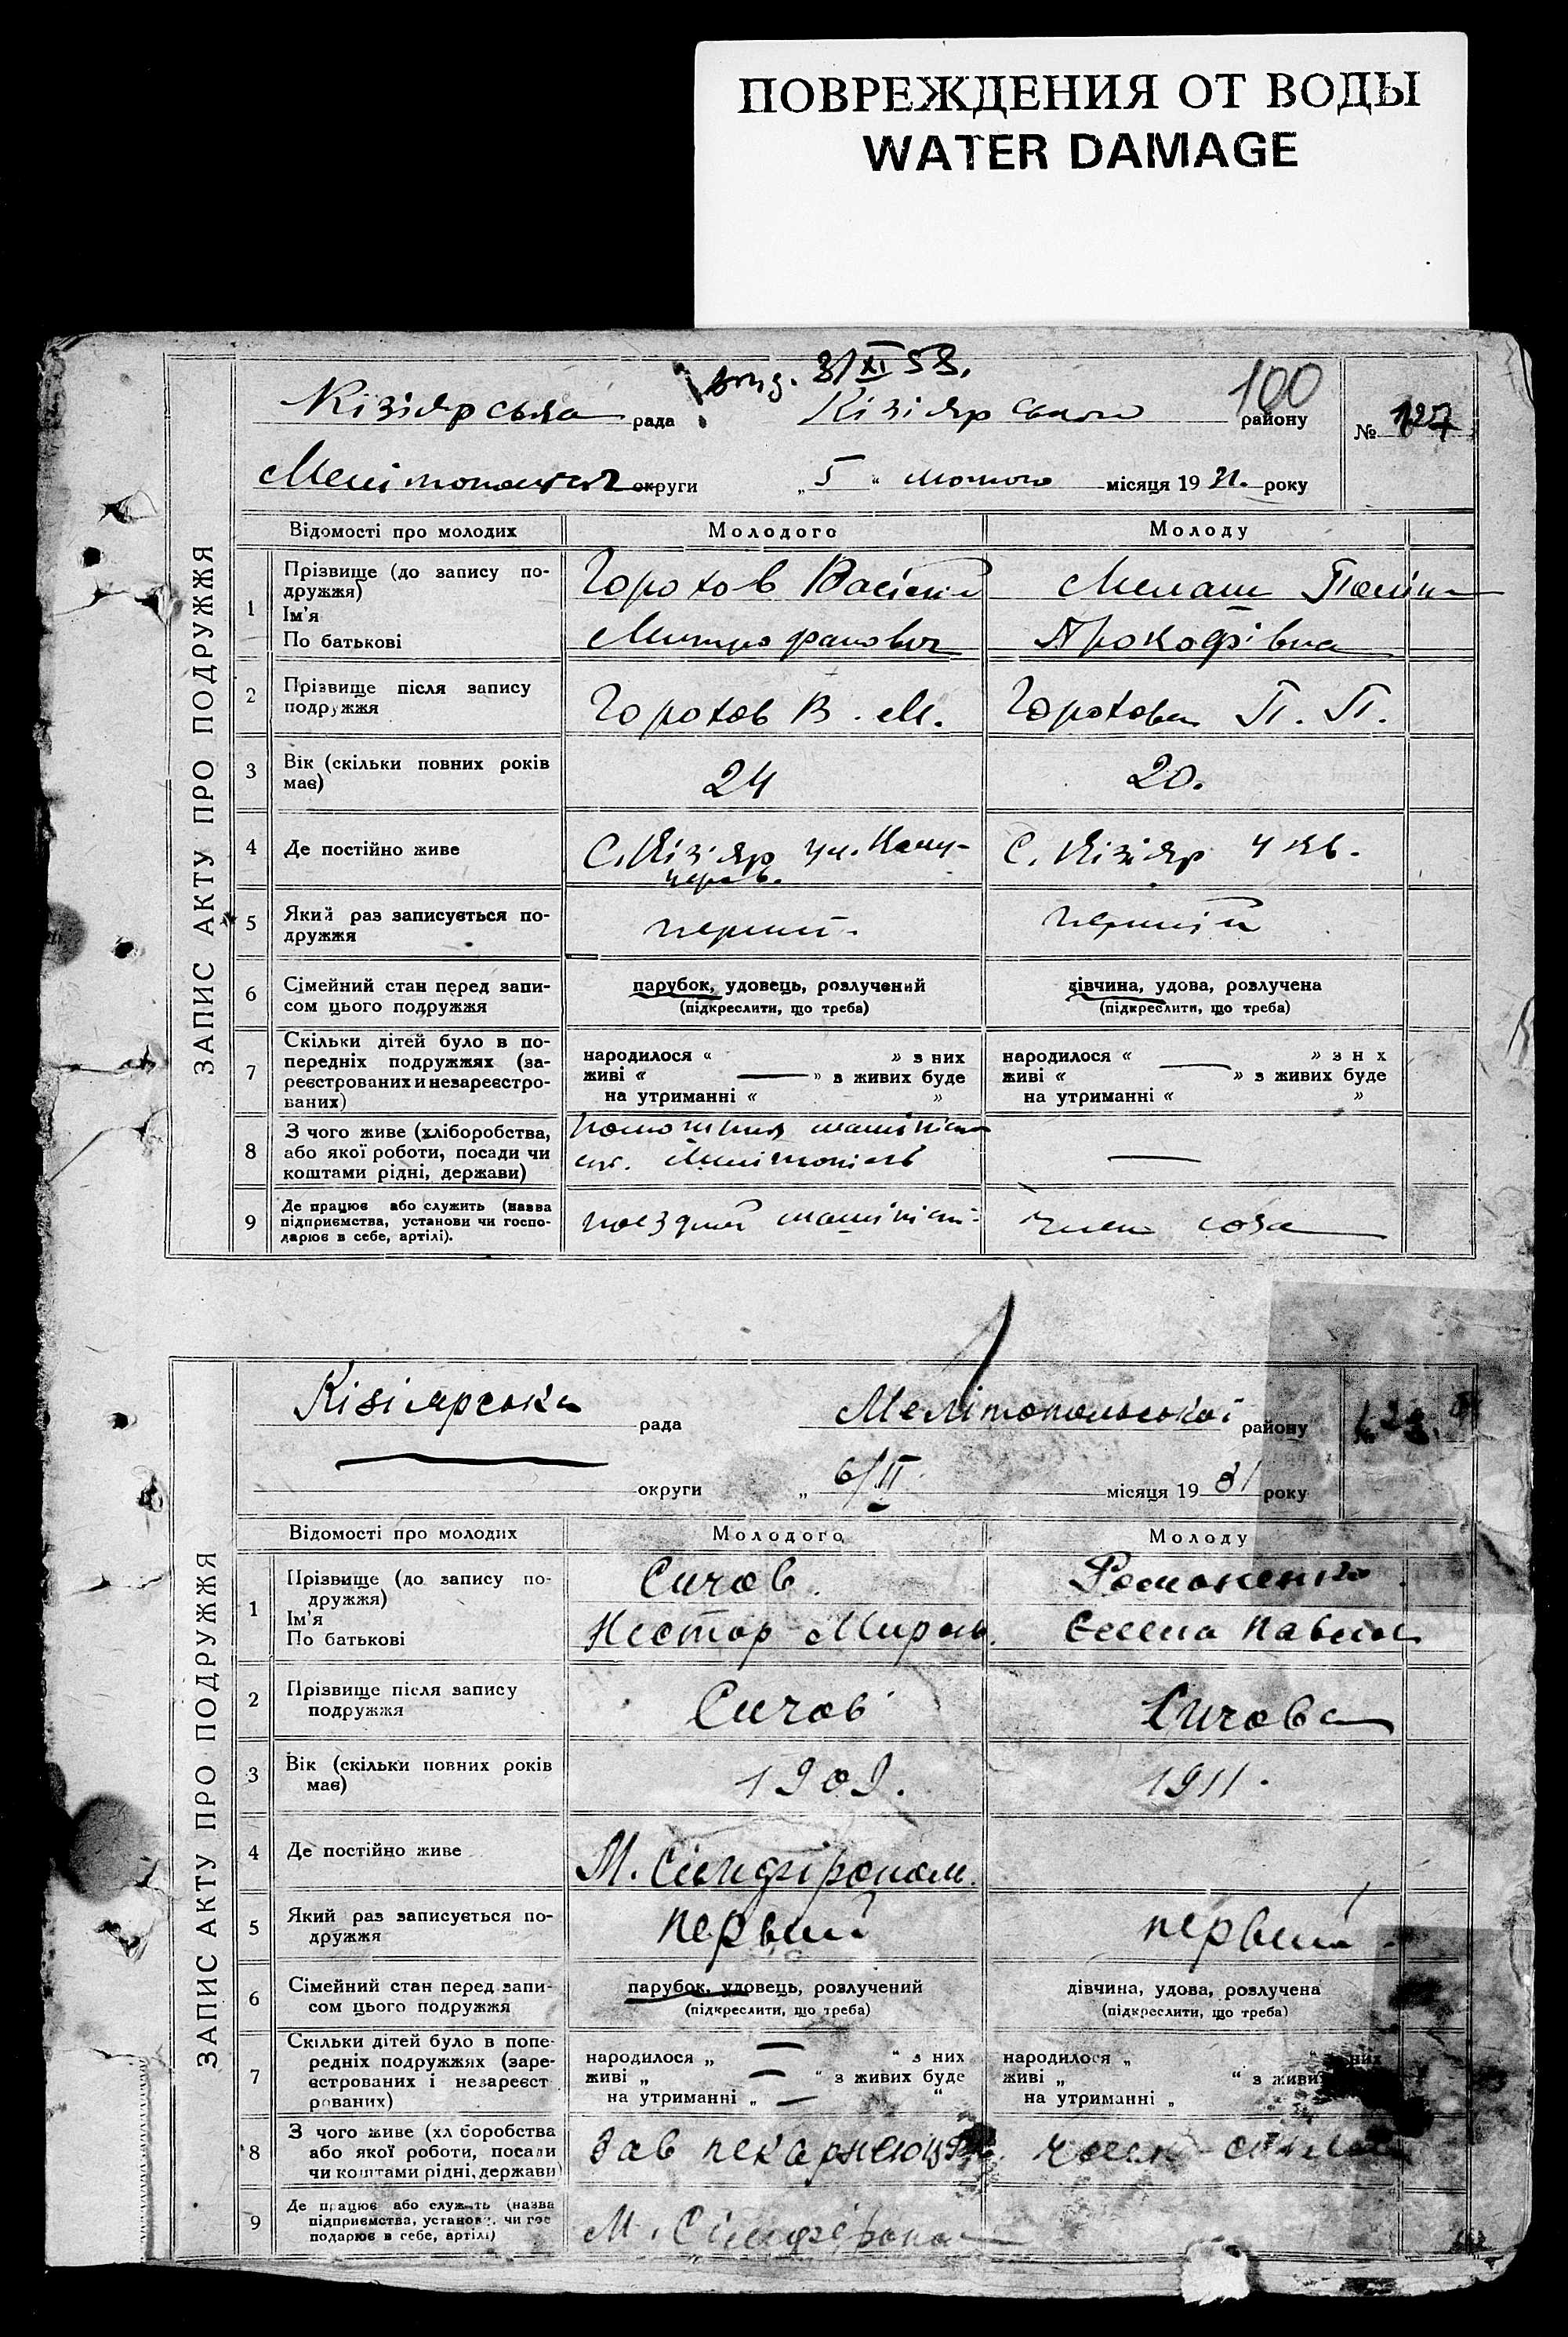 ПОВРЕЖДЕНИЯ ОТ ВОДЫ
WATER DAMAGE
8/XI 53.
100
Кізіярська рада Кізіярського району
№ 127
округи „ 5 “ лютого місяця 19 31. року
ЗАПИС АКТУ ПРО ПОДРУЖЖЯ
Відомості про молодих Молодого Молоду
1 Прізвище (до запису по-
дружжя)
Ім'я
По батькові
Горохов Василий
Митрофанович
Мелаш
Прокофівна
2 Прізвище після запису
подружжя
Горохов В. М. Горохова П. П.
3 Вік (скільки повних років
має)
24 20.
4 Де постійно живе
С. Кізіяр ул.
С. Кізіяр 4 кв.
5 Який раз записується по-
дружжя
перший перший
6 Сімейний стан перед запи-
сом цього подружжя
парубок, удовець, розлучений
(підкреслити, що треба)
дівчина, удова, розлучена
(підкреслити, що треба)
7 Скільки дітей було в по-
передніх подружжях (за-
реєстрованих и незареєстро-
ваних)
народилося “ » з них
живі “ — » з живих буде
на утриманні “ »
народилося “ » з н х
живі “ — » з живих буде
на утриманні “ »
8 З чого живе (хліборобства,
або якої роботи, посади чи
коштами рідні, держави)
ст. Мелітопіль
—
9 Де працює або служить (назва
підприємства, установи чи госпо-
дарює в себе, артілі).
член
ЗАПИС АКТУ ПРО ПОДРУЖЖЯ
Кізіярська рада Мелітопольської району
— округи „ 6/II місяця 19 31 року
Відомості про молодих Молодого Молоду
1 Прізвище (до запису по-
дружжя)
Ім'я
По батькові
Сичов.
Нестор Миров.
Романенко.
Елена Павлов
2 Прізвище після запису
подружжя
Сичов Сичова
3 Вік (скільки повних років
має)
1909. 1911.
4 Де постійно живе
М. Сімфірополь.
5 Який раз записується по-
дружжя
первый первый
6 Сімейний стан перед запи-
сом цього подружжя
парубок, удовець, розлучений
(підкреслити, що треба)
дівчина, удова, розлучена
(підкреслити, що треба)
7 Скільки дітей було в попе-
редніх подружжях (заре-
єстрованих і незареєст
рованих)
народилося „ — “ з них
живі „ — “ з живих буде
на утриманні „ — “
народилося „ “ них
живі „ “ з живи
на утриманні „
8 З чого живе (хл боробства
або якої роботи, посади
чи коштами рідні, держави)
Зав пекарнею
член
9 Де працює або служить (назва
підприємства, установи, чи гос
подарює в себе, артілі)
М. Сімферопол